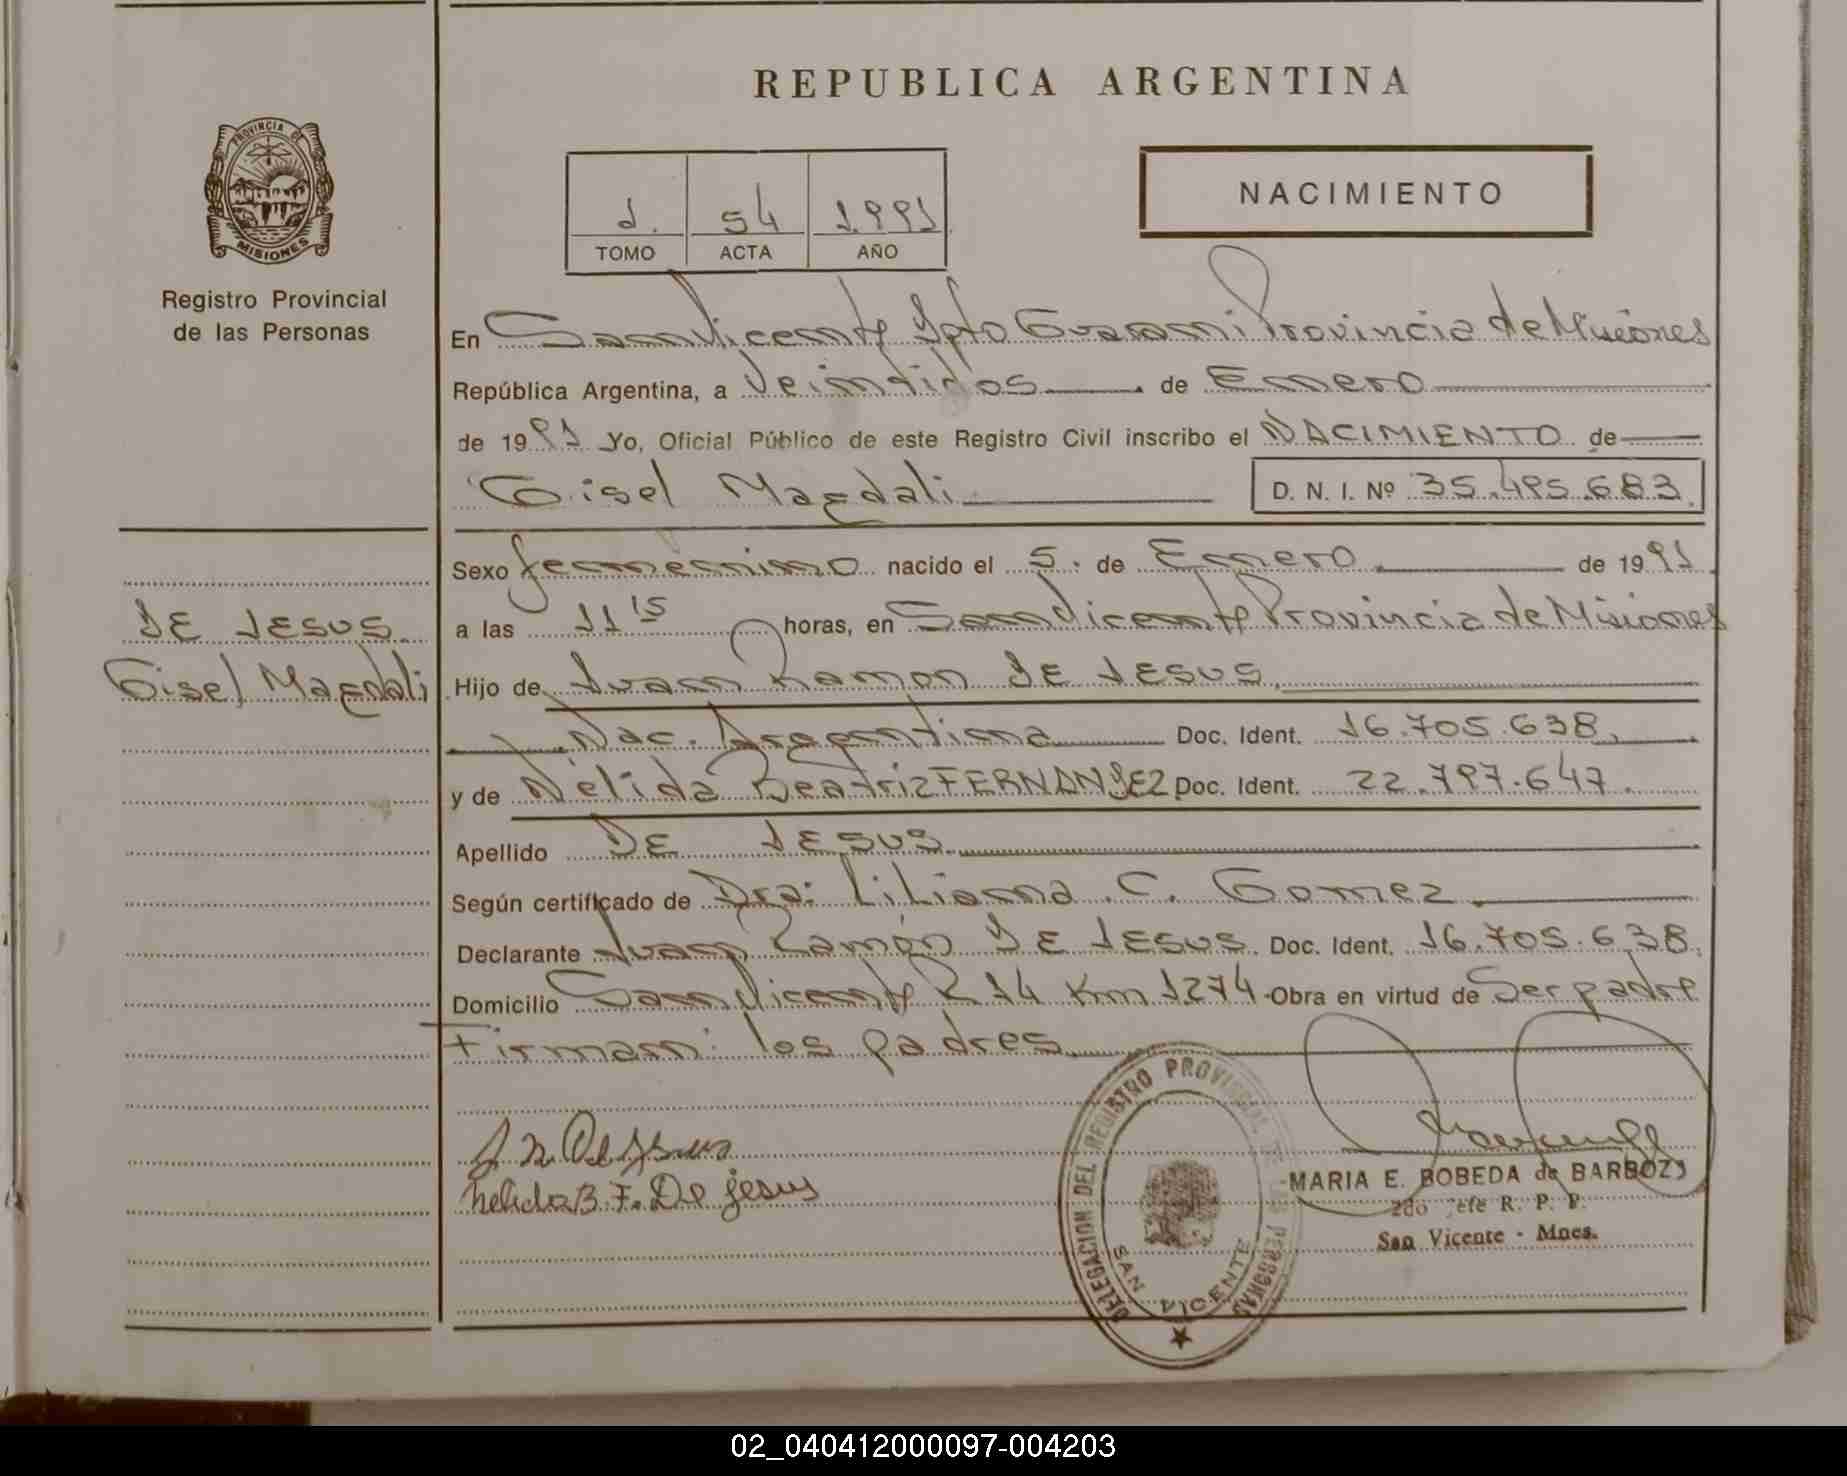 REPUBLICA ARGENTINA
NACIMIENTO
1. 54 1991
TOMO ACTA AÑO
PROVINCIA DE
MISIONES
Registro Provincial
de las Personas
En San Vicente Dpto Guarani Provincia de Misiones
República Argentina, a Veintidos de Enero
de 1991 Yo, Oficial Público de este Registro Civil inscribo el NACIMIENTO de
Gisel Magdali D. N. I. Nº 35.495.683
Sexo femenino nacido el 5. de Enero de 1991
DE JESUS
Gisel Magdali
a las 11 15 horas, en San Vicente Provincia de Misiones
Hijo de Juan Ramon DE JESUS
Nac. Argentina Doc. Ident. 16.705.638
y de Nélida Beatriz FERNANDEZ Doc. Ident. 22.797.647
Apellido DE JESUS
Según certificado de Dra: Liliana C. Gomez
Declarante Juan Ramón DE JESUS Doc. Ident. 16.705.638
Domicilio San Vicente R 14 Km 1274 Obra en virtud de Ser padre
Firman: los padres
Nelida B. F. De Jesus
DELEGACION DEL REGISTRO PROVINCIAL DE LAS PERSONAS
SAN VICENTE
MARIA E. BOBEDA de BARBOZA
2do Jefe R. P. P.
San Vicente - Mnes.
02_040412000097-004203